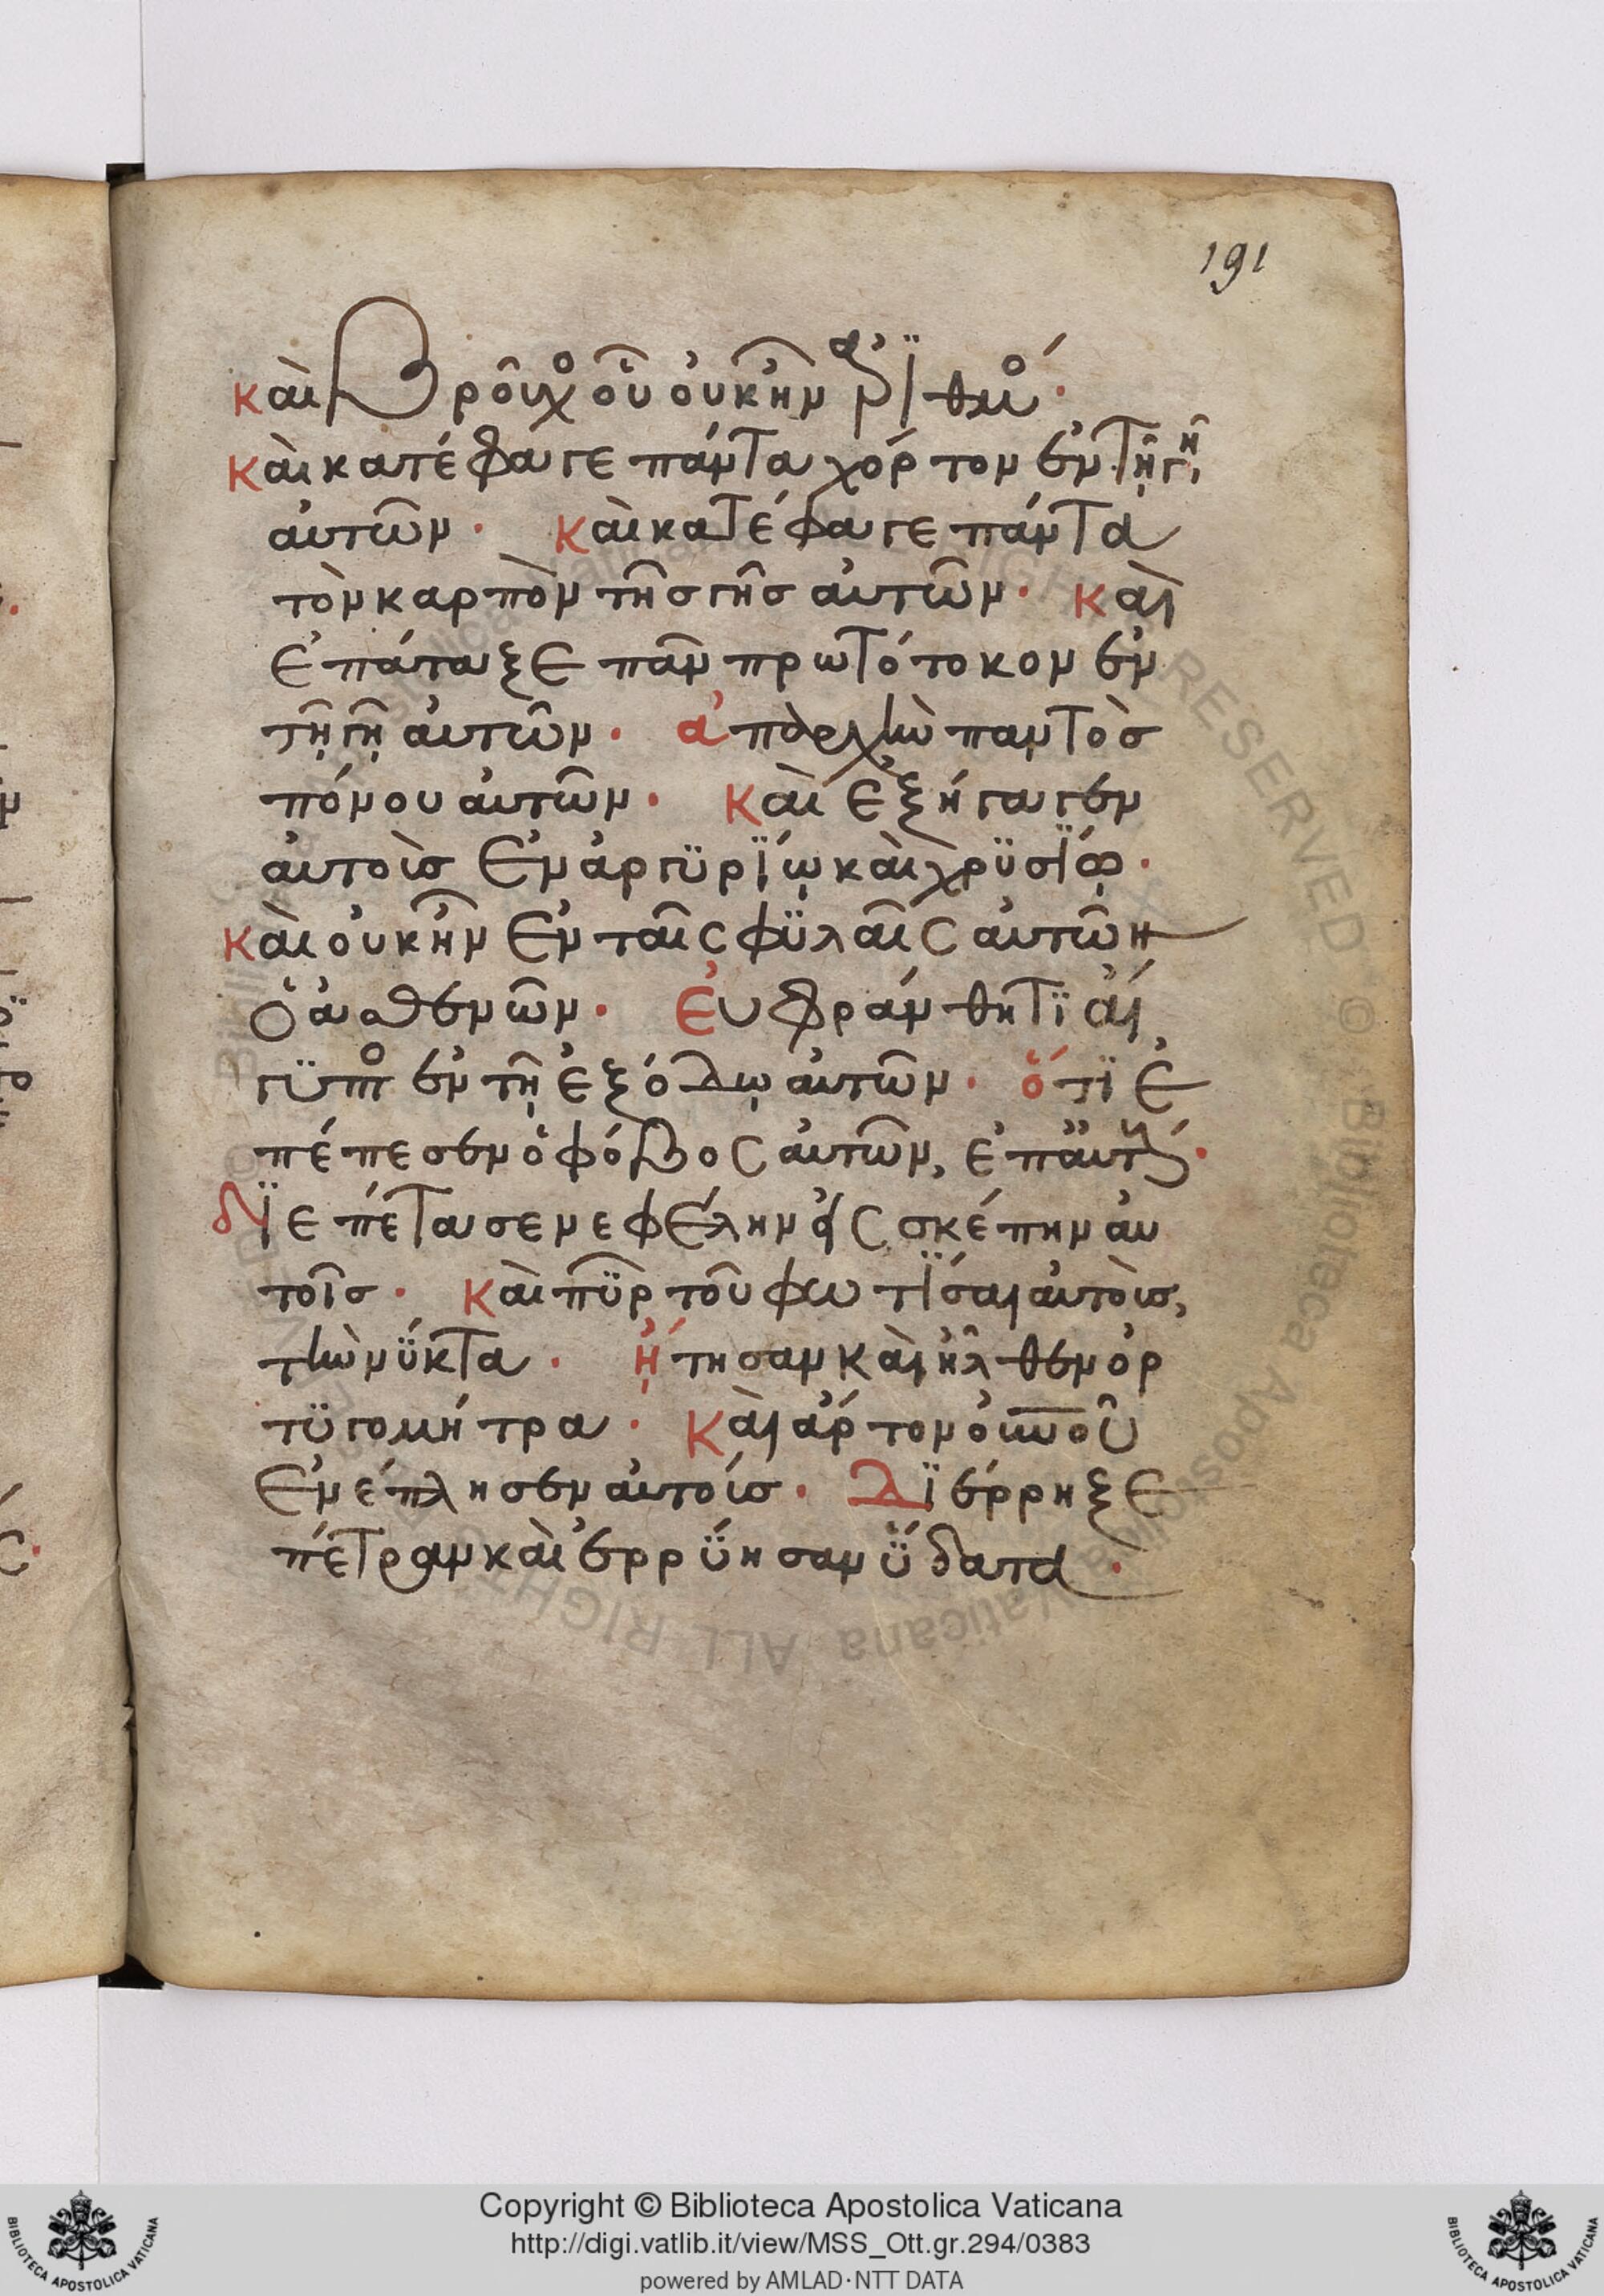 191
καὶ βροῦχος οὗ οὐκ ἦν ἀριθμός·
Καὶ κατέφαγε πάντα χόρτον ἐν τῇ γῇ
αὐτῶν· Καὶ κατέφαγε πάντα
τὸν καρπὸν τῆς γῆς αὐτῶν· Καὶ
ἐπάταξε πᾶν πρωτότοκον ἐν
τῇ γῇ αὐτῶν· ἀπαρχὴν παντὸς
πόνου αὐτῶν· Καὶ ἐξήγαγεν
αὐτοὺς ἐν ἀργϋρΐῳ καὶ χρϋσΐῳ·
Καὶ οὐκ ἦν ἐν ταῖς φϋλαῖς αὐτῶν
ὁ ἀσθενῶν· Εὐφράνθητϊ Αἴ
γϋπτος ἐν τῇ ἐξόδῳ αὐτῶν· ὅτϊ ἐ
πέπεσεν ὁ φόβος αὐτῶν, ἐπ' αὐτούς·
δϊεπέτασε νεφέλην εἰς σκέπην αὐ
τοῖς· Καὶ πῦρ τοῦ φωτΐσαι αὐτοὺς,
τὴν νύκτα· ᾔτησαν καὶ ἦλθεν ὀρ
τϋγομήτρα· Καὶ ἄρτον οὐνοῦ
ἐνέπλησεν αὐτούς· Δϊέρρηξε
πέτραν καὶ ἐρρύησαν ὕδατα·
Copyright © Biblioteca Apostolica Vaticana
http://digi.vatlib.it/view/MSS_Ott.gr.294/0383
powered by AMLAD·NTT DATA
BIBLIOTECA APOSTOLICA VATICANA
BIBLIOTECA APOSTOLICA VATICANA